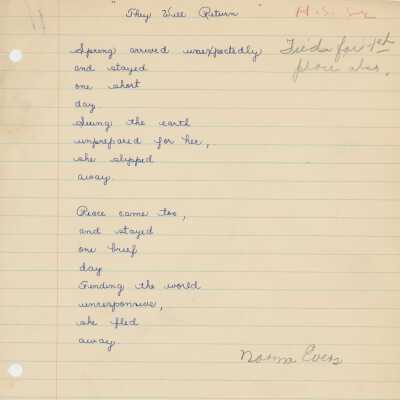 "They Will Return"
H. S.
Tied for 1st
place also.
Spring arrived unexpectedly
and stayed
one short
day.
Seeing the earth
unprepared for her,
she slipped
away.
Peace came too,
and stayed
one brief
day
Finding the world
unresponsive,
she fled
away.
Norma Evers